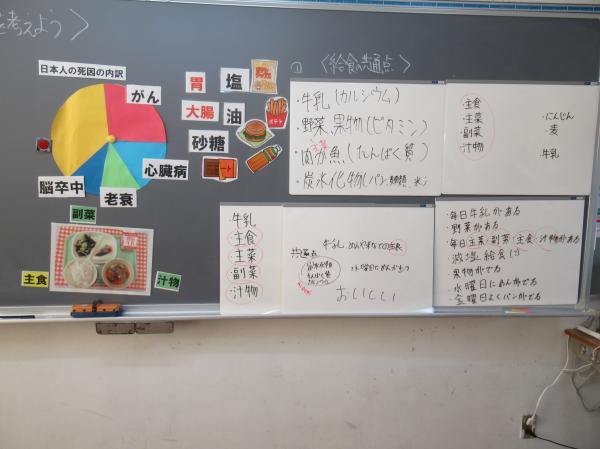 を考えよう〉
日本人の死因の内訳
がん
心臓病
老衰
脳卒中
胃
塩
大腸
油
砂糖
ポテト
副菜
主食
汁物
① 〈給食の共通点〉
・牛乳(カルシウム)
・野菜、果物(ビタミン)
主菜
・肉か魚(たんぱく質)
・炭水化物(パン、麺類、米)
主食
主菜
副菜
汁物
・にんじん
・麦
牛乳
・牛乳
・主食
・主菜
・副菜
・汁物
共通点
牛乳
水曜日にめんがでる
おいしい
・毎日牛乳がある
・野菜がある
・毎日主菜、副菜、主食、汁物がある
・減塩給食
・果物がでる
・水曜日にめんがでる
・金曜日よくパンがでる